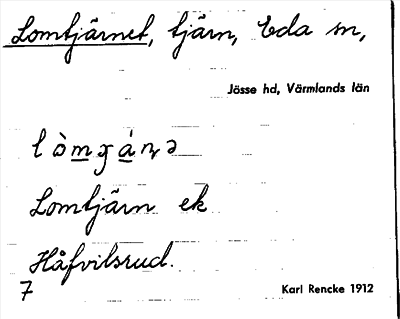 Lomtjärnet, tjärn, Eda sn,
Jösse hd, Värmlands län
Lomtjärn ek
Håfvilsrud.
7
Karl Rencke 1912